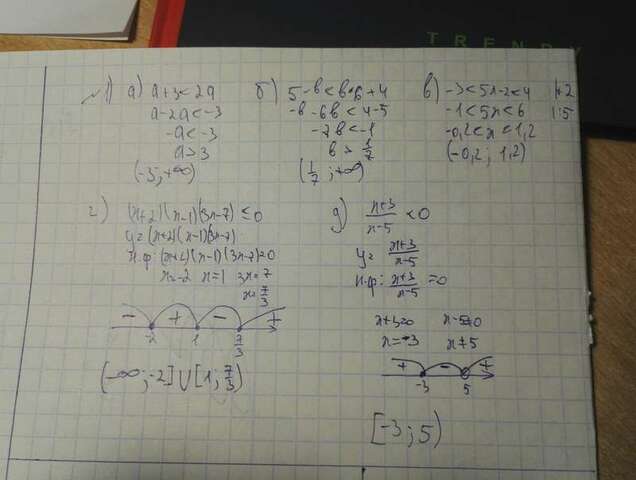 TRENDY
1) а) a+3<2a
a-2a<-3
-a<-3
a>3
(-3;+∞)
б) 5-b<b·6+4
-b-6b<4-5
-7b<-1
b>1/7
(1/7;+∞)
в) -3<5x-2<4 |+2
-1<5x<6 |:5
-0,2<x<1,2
(-0,2; 1,2)
г) (x+2)(x-1)(3x-7)≤0
y=(x+2)(x-1)(3x-7)
н.ф: (x+2)(x-1)(3x-7)=0
x=-2 x=1 3x=7
x=7/3
- + - +
-2 1 7/3
(-∞;-2]∪[1;7/3)
д) x+3/x-5 <0
y= x+3/x-5
н.ф: x+3/x-5 =0
x+3=0 x-5≠0
x=-3 x≠5
+ - +
-3 5
[-3;5)